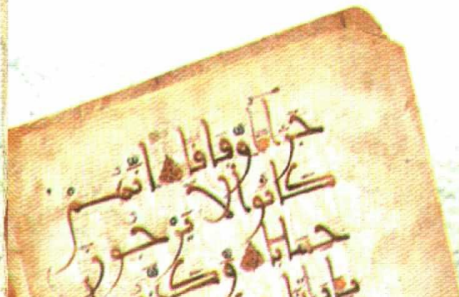 جَزَآءً وِّفَاقًا اِنَّهُمْ
كَانُوا لَا يَرْجُونَ
حِسَابًا وَّكَذَّ
بُوا بِاٰيَاتِنَا